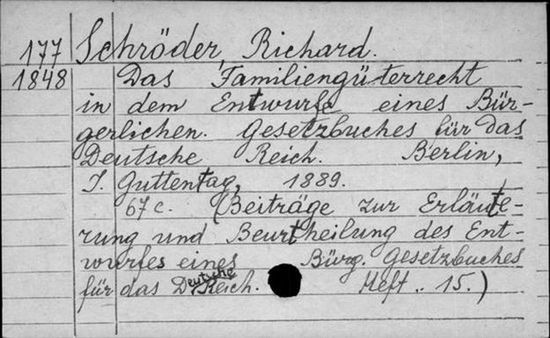 177 Schröder, Richard.
1848 Das Familiengüterrecht
in dem Entwurfe eines Bür-
gerlichen. Gesetzbuches für das
Deutsche Reich. Berlin,
J. Guttentag, 1889.
67 c. (Beiträge zur Erläute-
rung und Beurtheilung des Ent-
wurfes eines Bürg. Gesetzbuches
für das Deutsche Reich. Heft .. 15.)